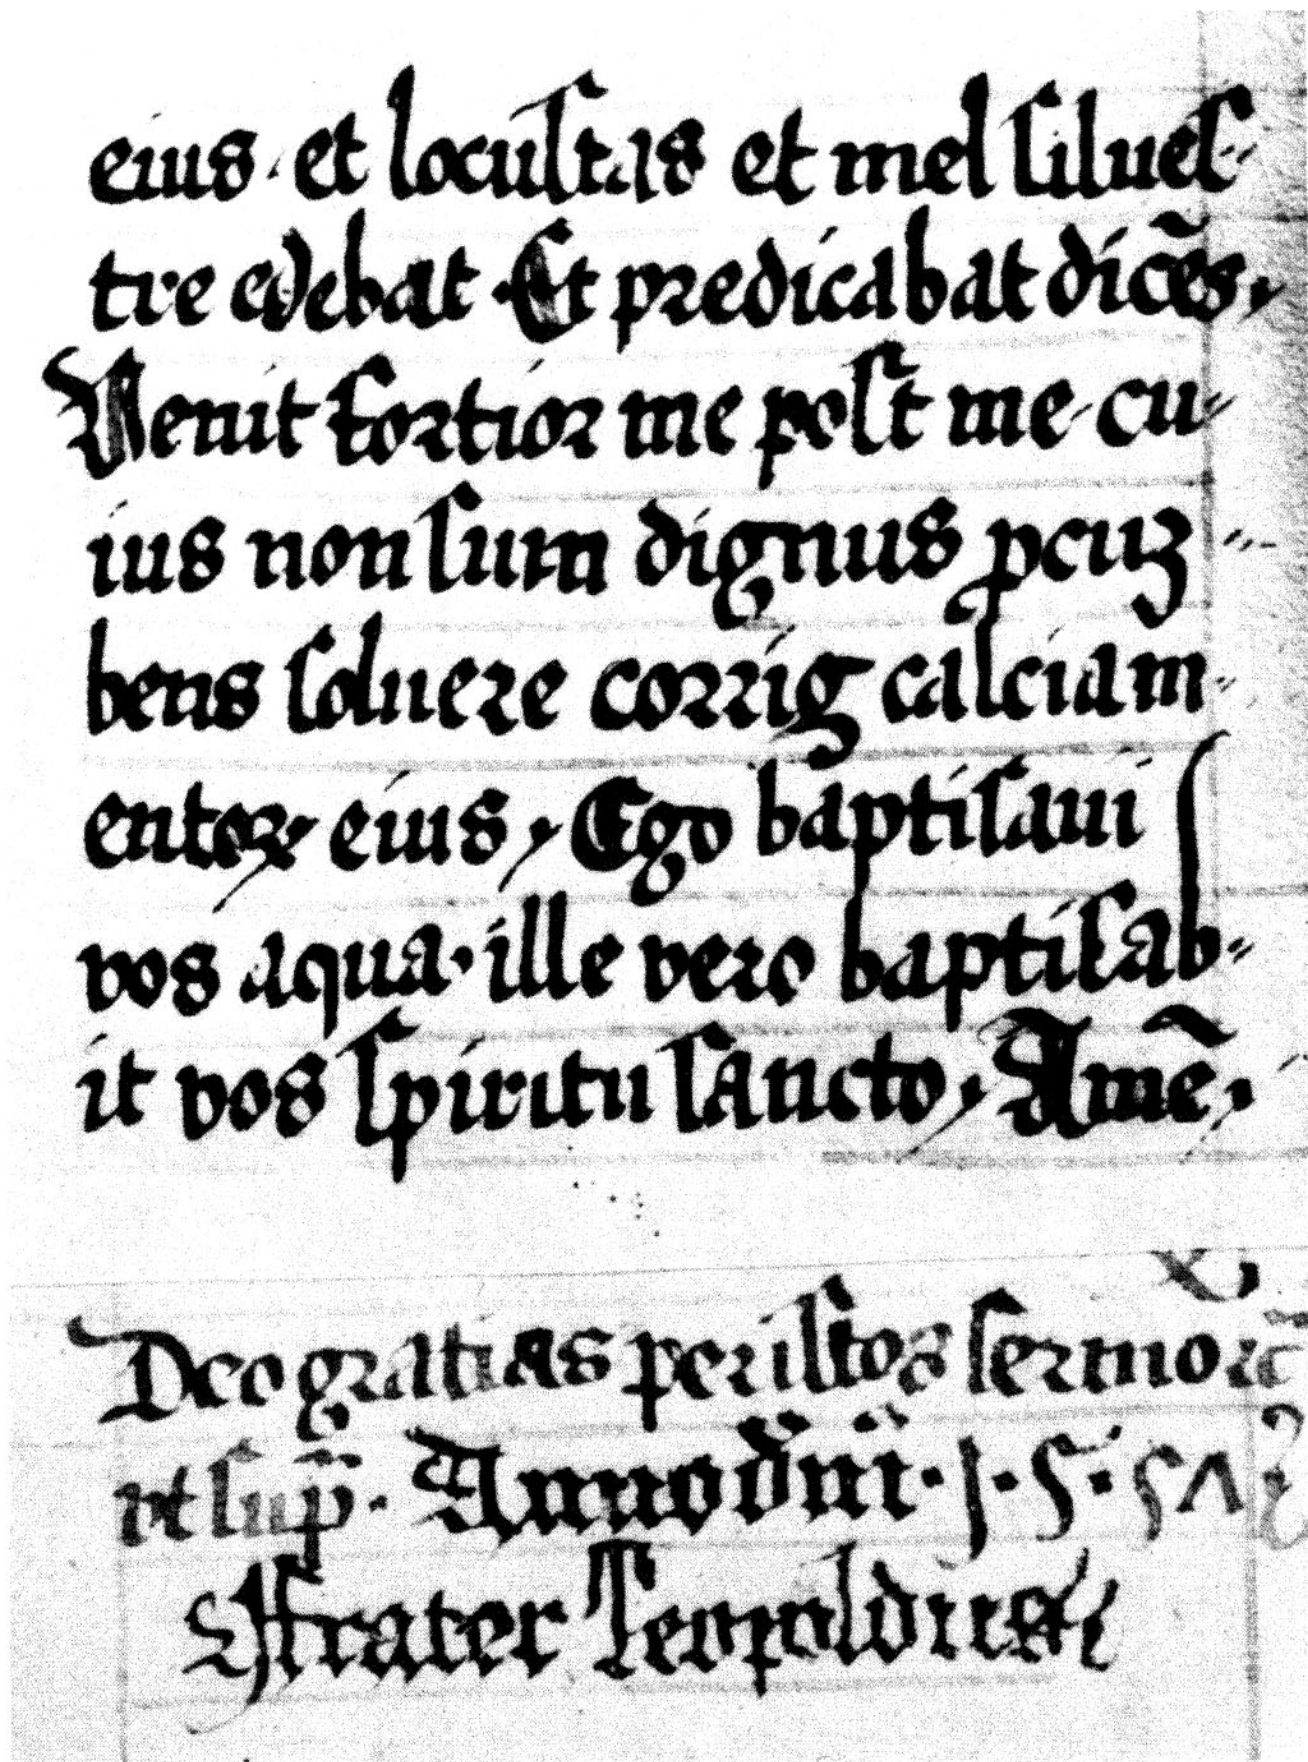 eius · et locustas et mel silues-
tre edebat · Et predicabat dicẽs,
Venit fortior me post me cu-
ius non sum dignus ꝓcuʒ
bens soluere corrig calciam-
entoꝝ eius, Ego baptisaui
vos aqua · ille vero baptisab-
it vos spiritu sancto, Amẽ,
Deo gratias per istos sermo
vt sup̃ · Anno dñi · 1 · 5 ·
Frater Leopoldus